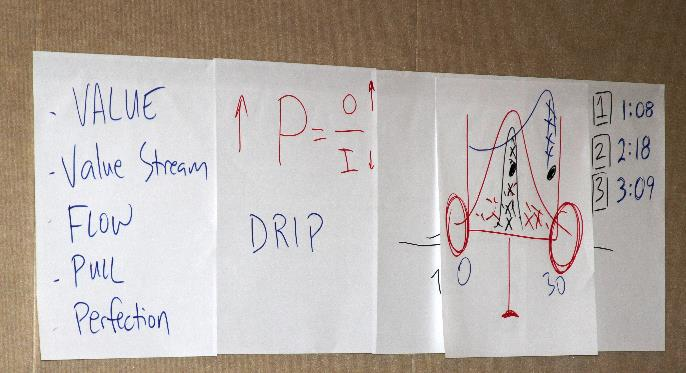 - VALUE
- Value Stream
- FLOW
- PULL
- Perfection
↑ P = O/I ↑ ↓
DRIP
1
0
30
1 1:08
2 2:18
3 3:09